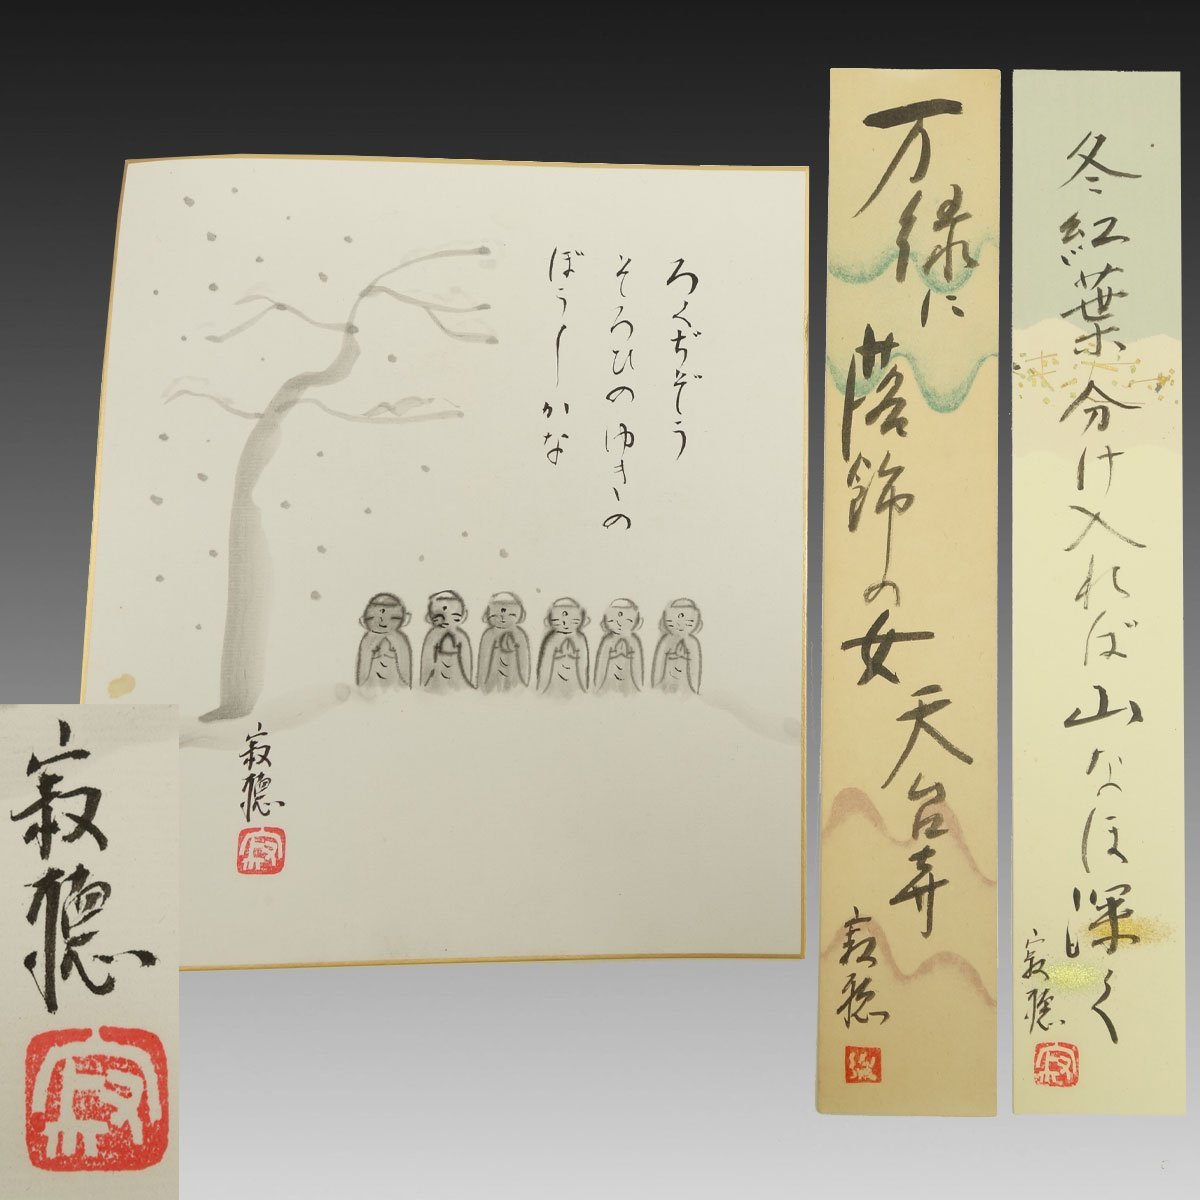 ろくぢぞう
そろひのゆきの
ぼうしかな
寂聴
寂
万緑に
落飾の女
天台寺
寂聴
冬紅葉分け入れば山なほ深く
寂聴
寂
寂聴
寂